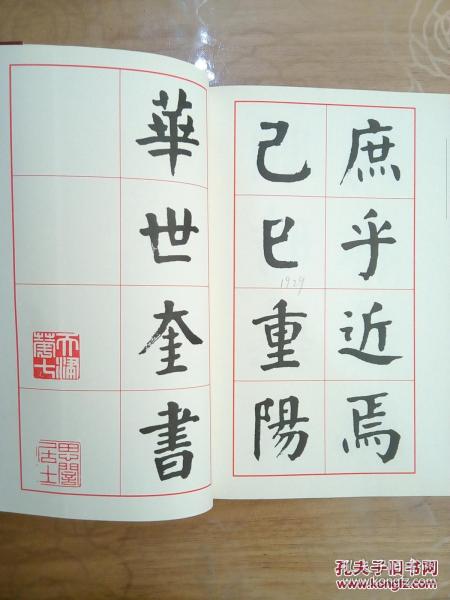 庶乎近焉
己巳重陽
1929
華世奎書
天瀾
萬七
思闇
居士
孔夫子旧书网
www.kongfz.com